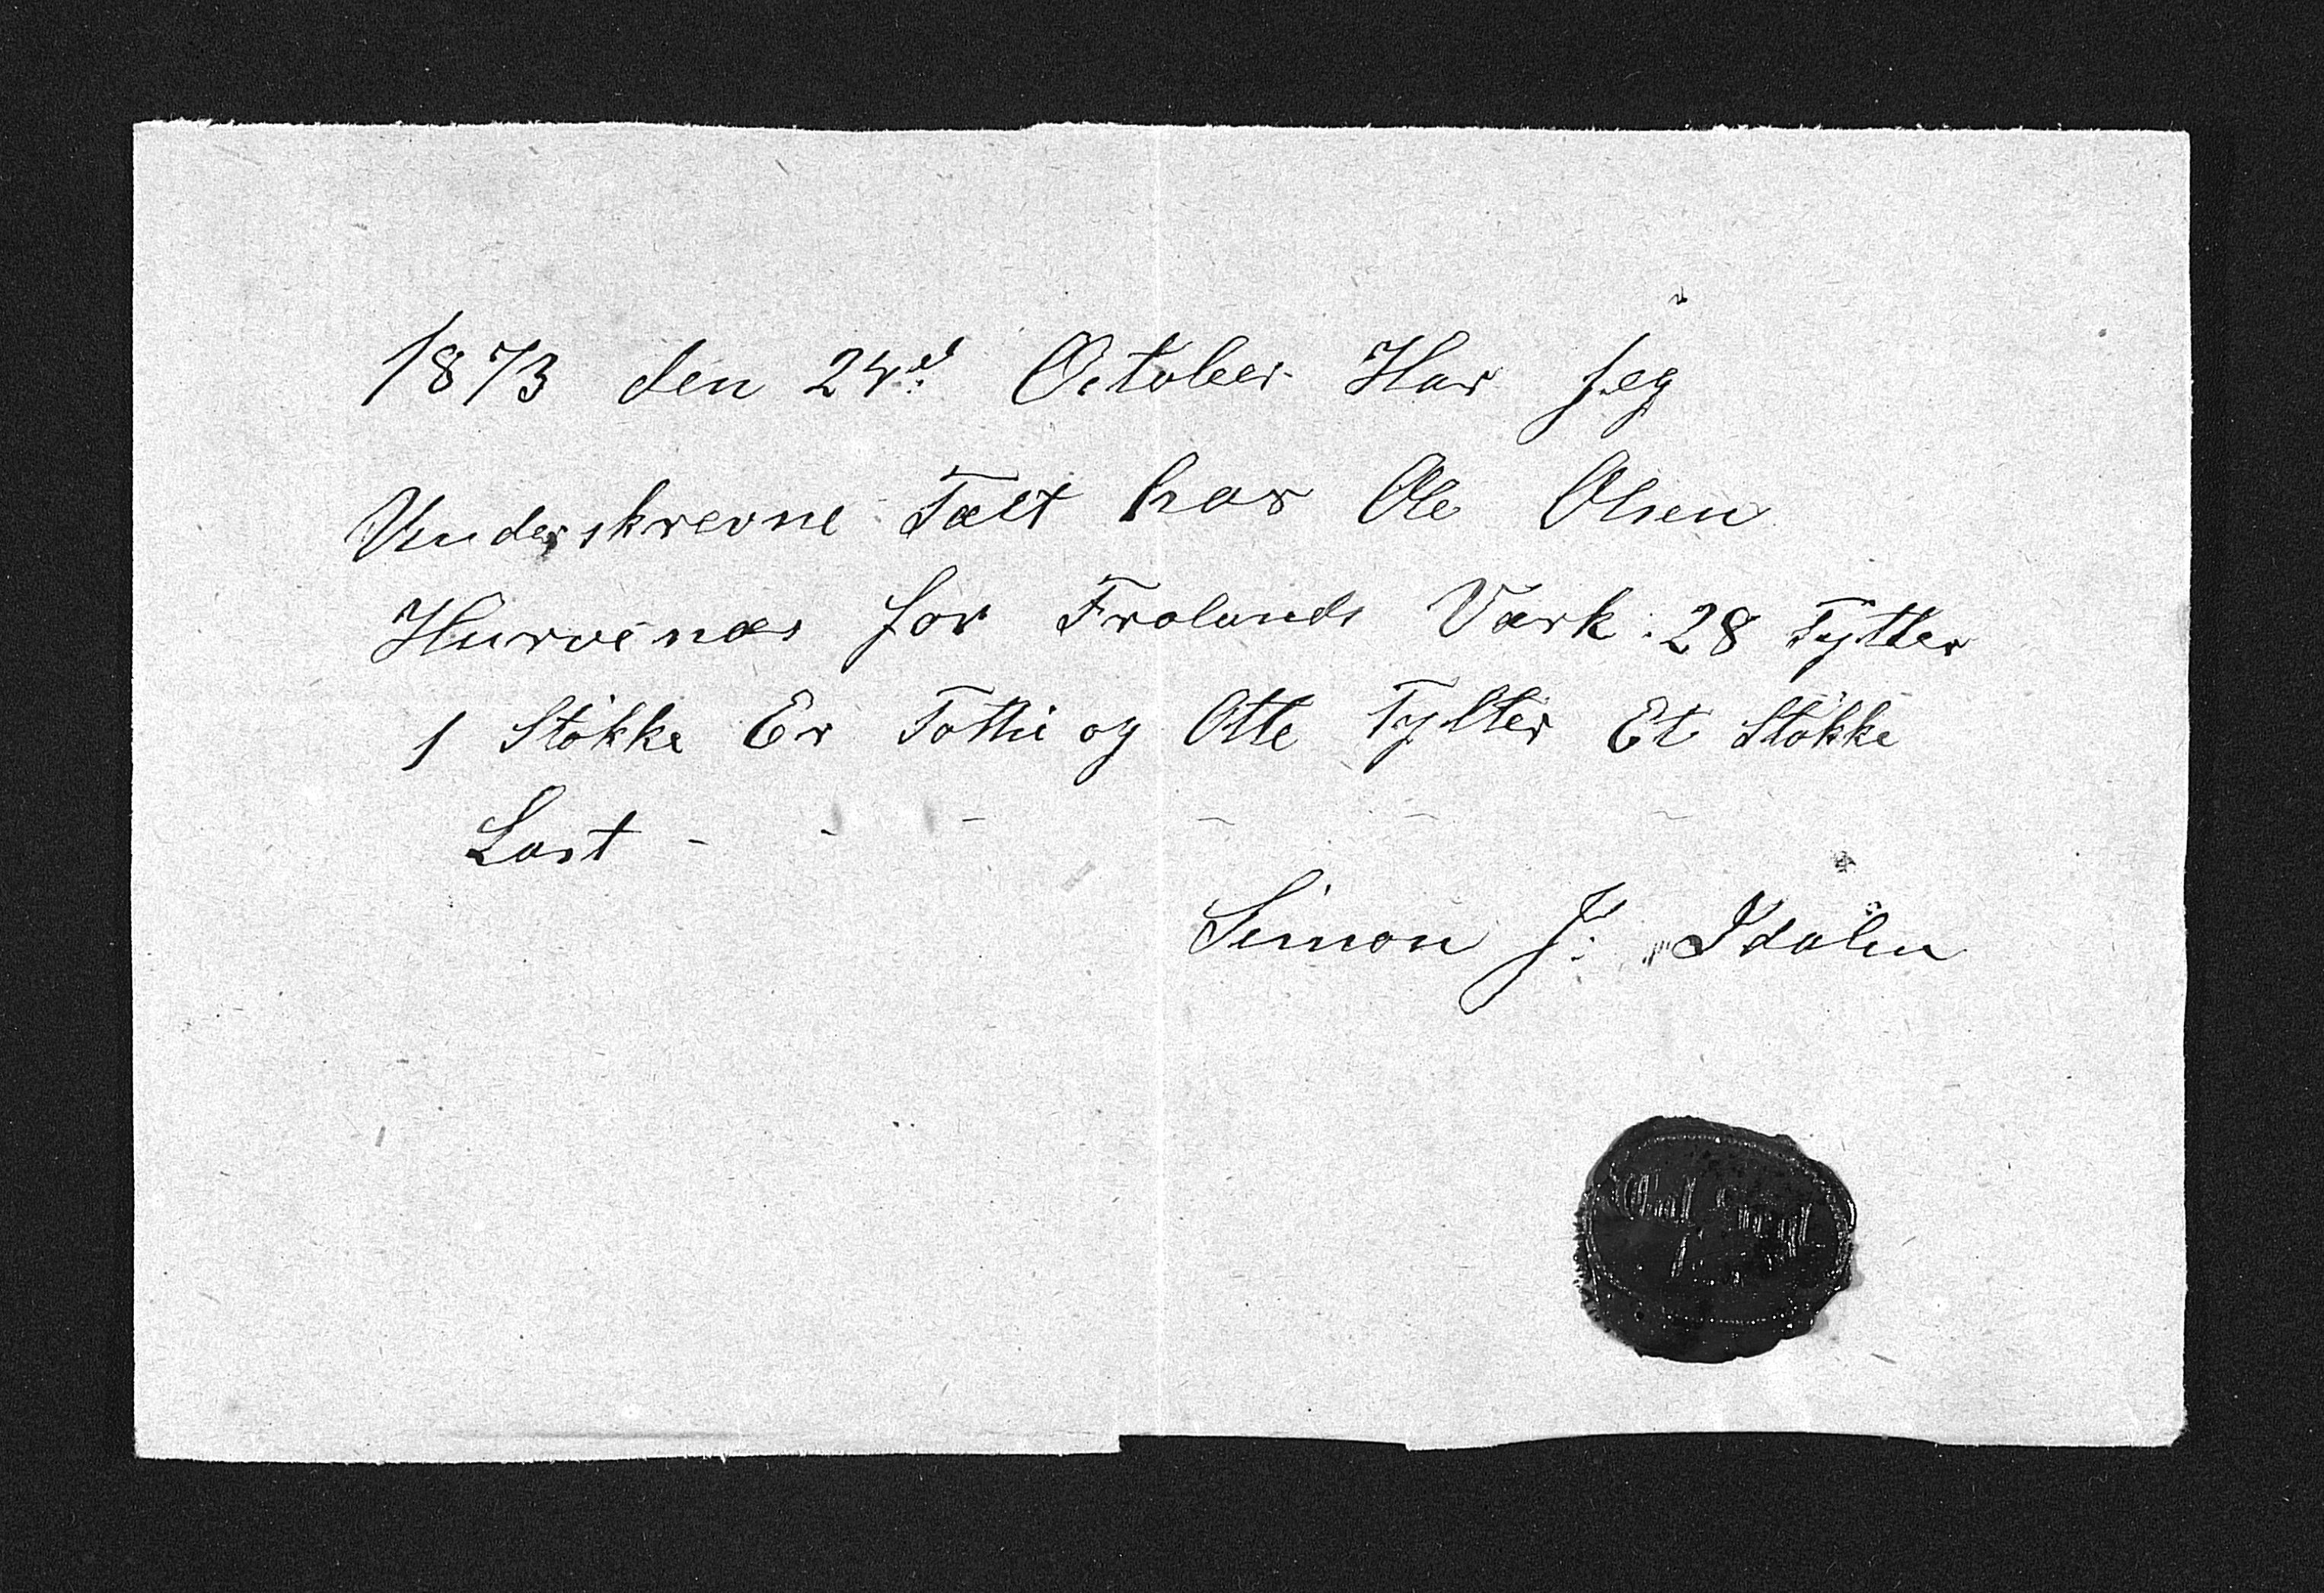 1873 den 24d October Har jeg
Underskrevne Tælt hos Ole Olsen
Hurvenæs for Frolands Værk. 28 Tylter
1 Støkke Er Totti og Otte Tylter Et Støkke
Last - - - - - -
Simon J: Idalen